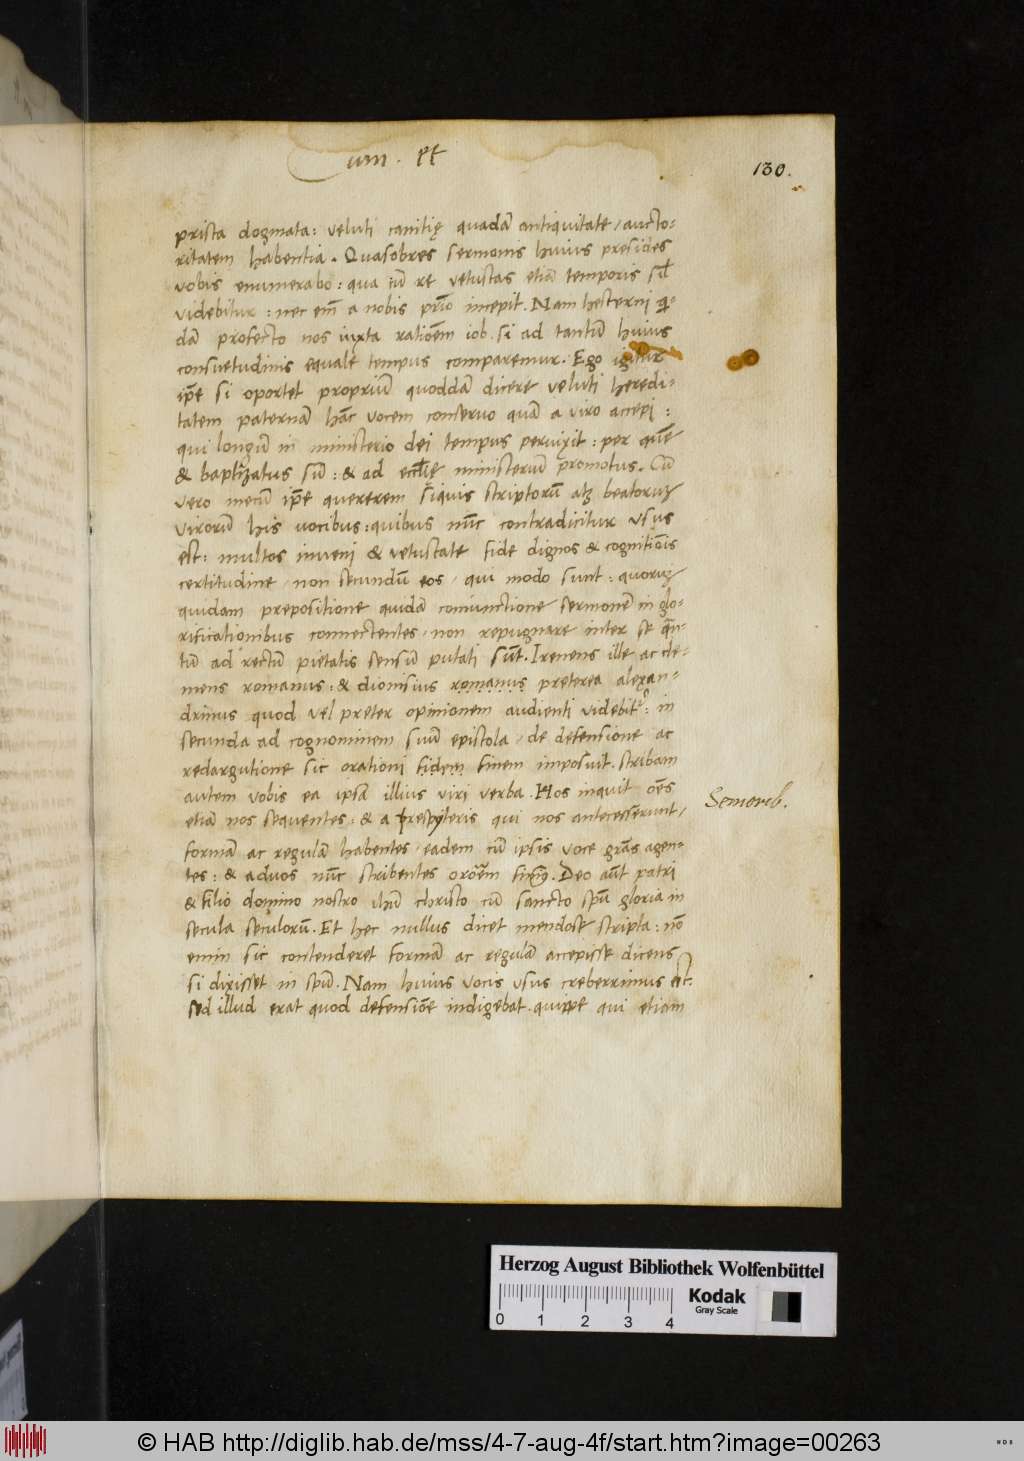 um . et
130.
prista dogmata: veluti canitię quadā antiquitate, aucto-
ritatem habentia. Quasobres sermonis huius presides
vobis enumerabo: qua cū re vetustas etiā temporis
videbitur: nec em̄ a nobis prīo incepit. Nam hesterni
dam profecto nos iuxta ratiōem iob. si ad tantū huius
consuetudinis equale tempus comparemur. Ego igitur
ip̄e si oportet propriū quoddā dicere veluti heredi-
tatem paternā hāc vocem conservo quā a viro accepi:
qui longū in ministerio dei tempus pervixit: per quē
& baptizatus sū: & ad eccl̄ie ministeriū promotus. Cū
vero mecū ip̄e quererem siquis scriptorū atq beatoruȝ
virorū his vocibus: quibus nūc contradicitur usus
est: multos inveni & vetustate fide dignos & cognitiōis
certitudine, non secundū eos, qui modo sunt: quoruȝ
quidam prepositione quidā coniunctione sermonē in glo-
rificationibus connectentes, non repugnare inter se quā-
tū ad rectū pietatis sensū putati sūt. Ireneus ille ac cle-
mens romanus: & dionisius romanus preterea alexan-
drinus quod vel preter opinionem audienti videbit: in
secunda ad cognominem suū epistola, de defensione ac
redargutione sic orationi fidem finem imposuit. stribam
autem vobis ea ipsa illius viri verba. Hos inquit oēs
etiā nos sequentes: & a prespyteris qui nos antecesserunt,
Semoreb.
formā ac regulā habentes, eadem cū ipsis voce grās agen-
tes: & aduos nūc stribentes orōem finiemus. Deo aūt patri
& filio domino nostro ihū christo cū sancto spū gloria in
secula seculorū. Et hec nullus dicet mendose stripta: nō
enim sic contenderet formā ac regulā accepisse dicens
si dixisset in spū. Nam huius vocis usus creberrimus est.
sed illud erat quod defensiōe indigebat. quippe qui etiam
Herzog August Bibliothek Wolfenbüttel
0 1 2 3 4
Kodak
Gray Scale
© HAB http://diglib.hab.de/mss/4-7-aug-4f/start.htm?image=00263